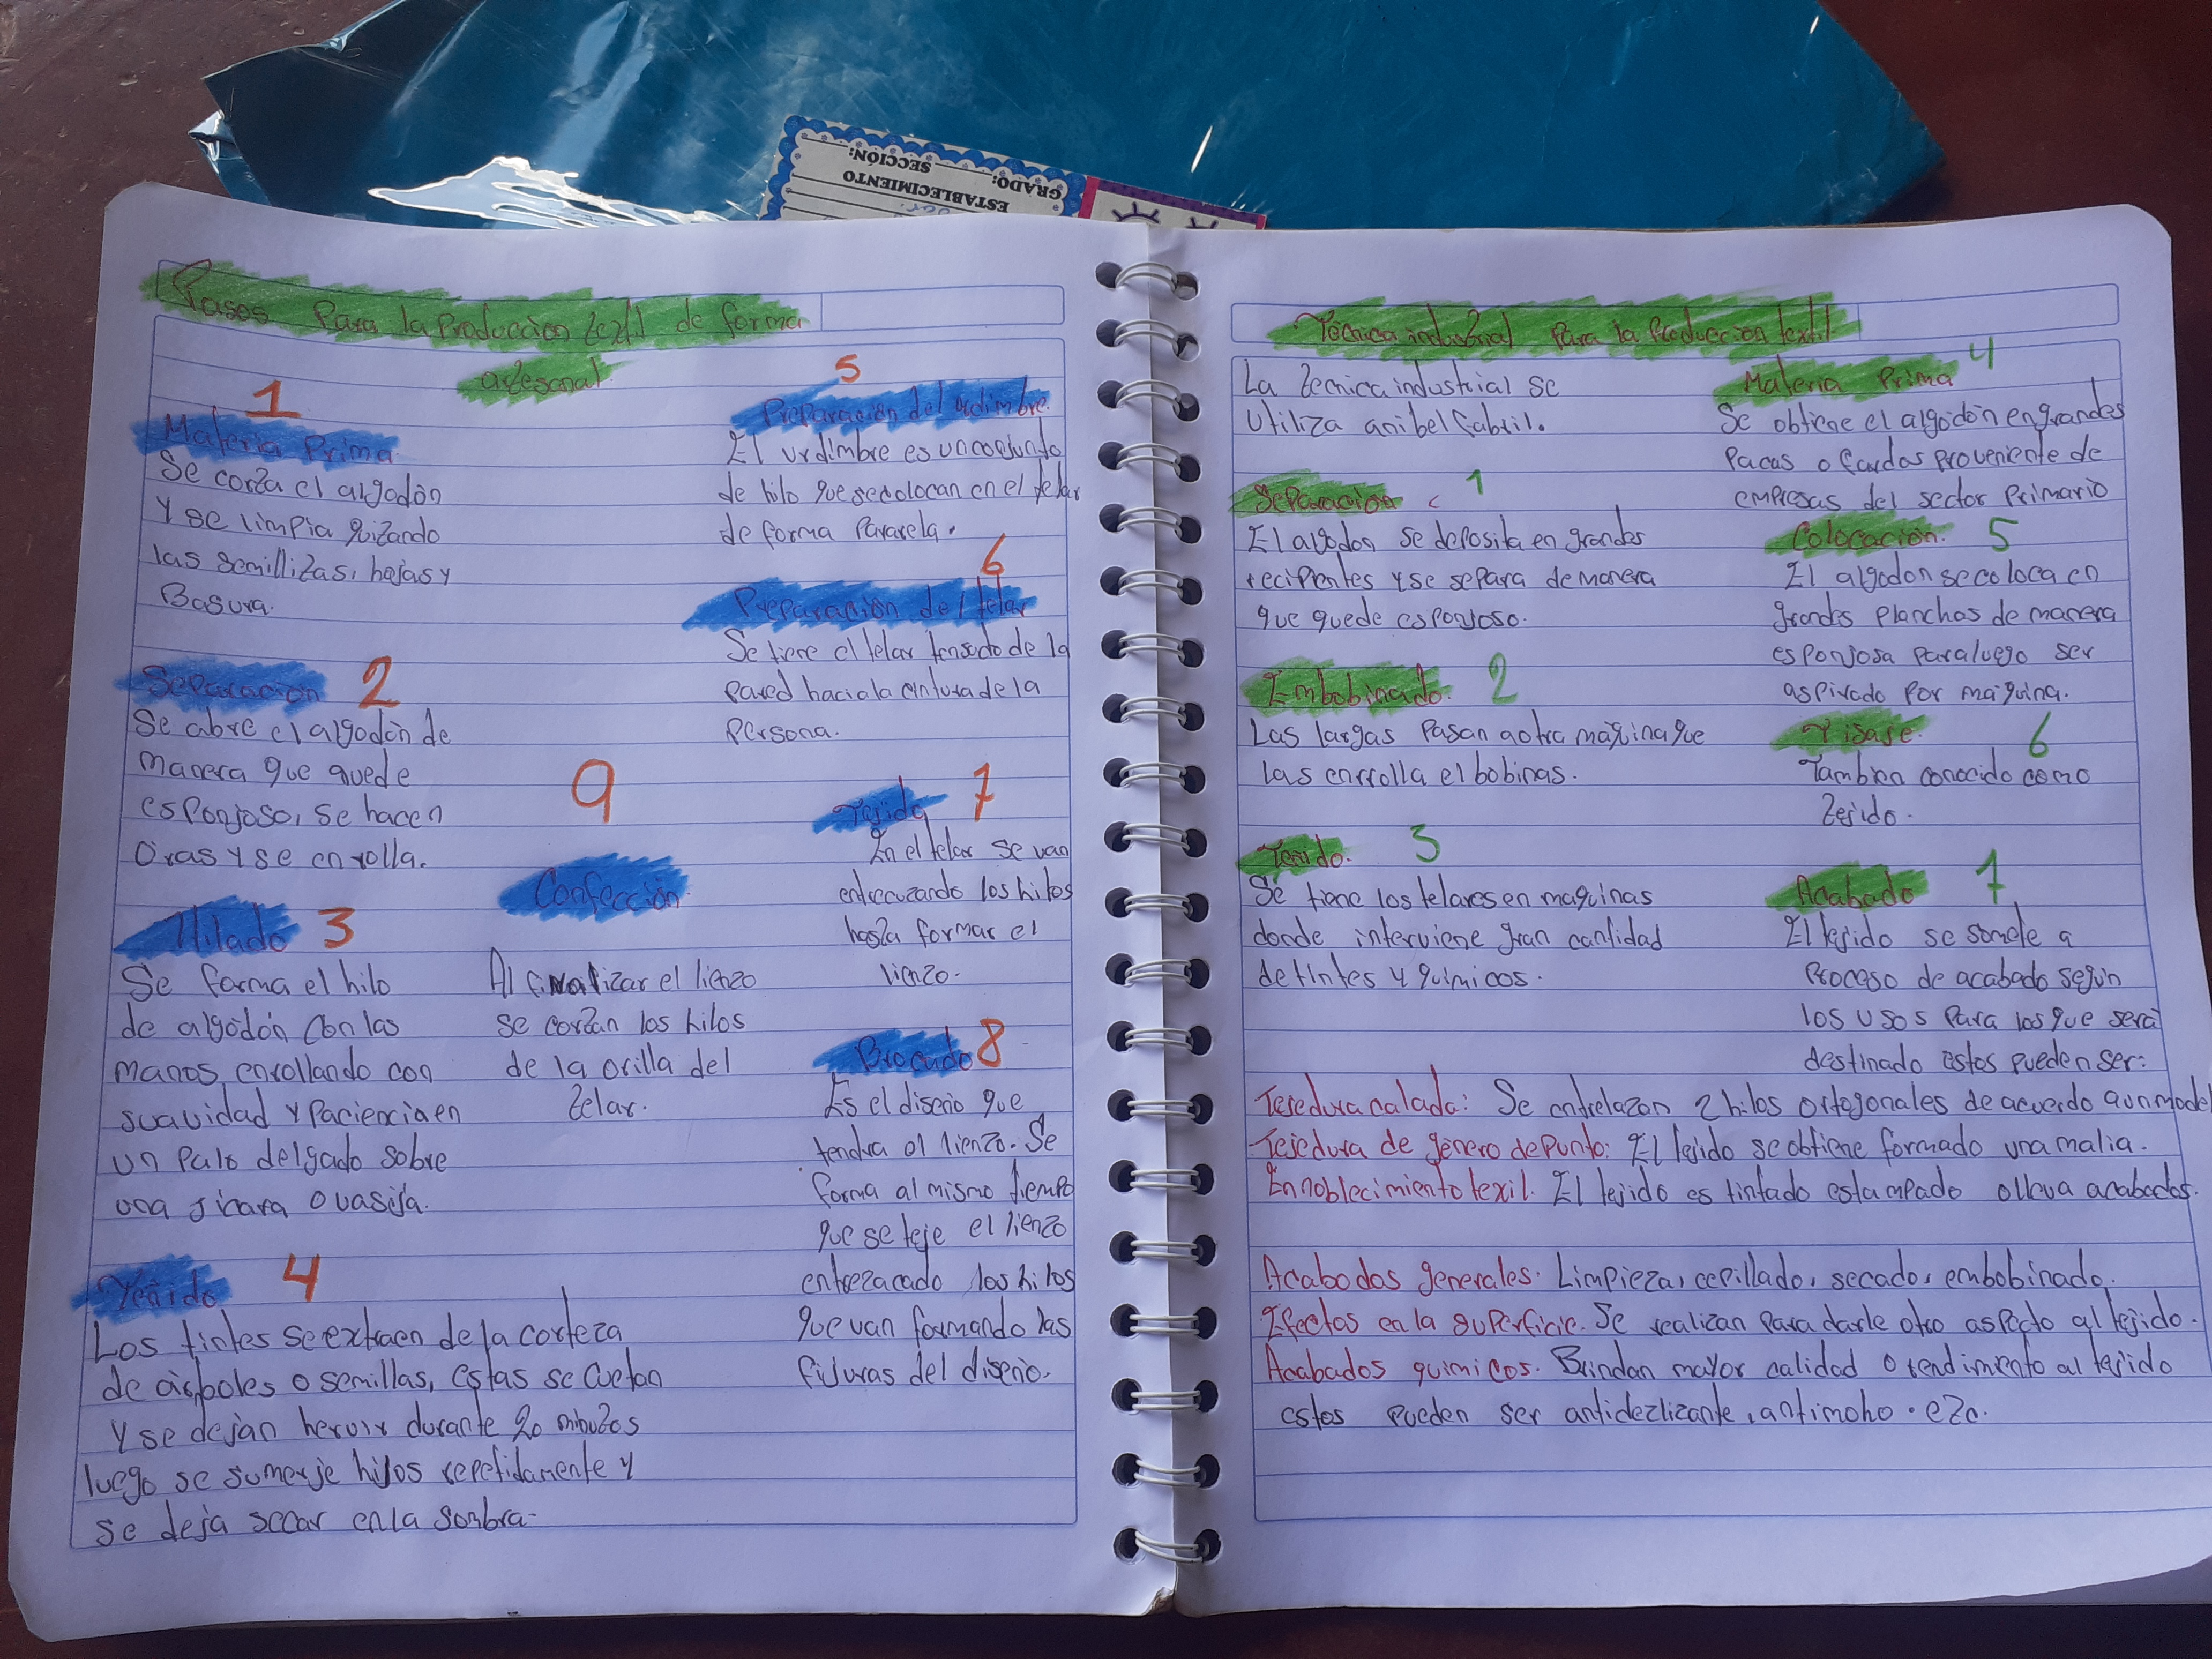 GRADO:
SECCIÓN:
ESTABLECIMIENTO
Pasos Para la Producción textil de forma
artesanal.
1
Materia Prima
Se corta el algodón
Y se limpia quitando
las semillitas, hojas y
Basura.
Separación 2
Se abre el algodón de
manera que quede
esponjoso, se hacen
Oras y se enrolla.
Hilado 3
Se forma el hilo
de algodón con las
manos, enrollando con
suavidad y Paciencia en
un Palo delgado sobre
una jicara o vasija.
Teñido 4
Los tintes se extraen de la corteza
de árboles o semillas, estas se cuetan
y se dejan hervir durante 20 minutos
luego se sumerje hilos repetidamente y
se deja secar en la sombra-
9
Confección
Al finalizar el lienzo
se cortan los hilos
de la orilla del
Telar.
5
Preparación del urdimbre
El urdimbre es un conjunto
de hilo que se colocan en el telar
de forma Pararela.
6
Preparación del telar
Se tiene el telar tensado de la
Pared hacia la cintura de la
Persona.
Tejido 7
En el telar se van
entrecruzando los hilos
hasta formar el
lienzo.
Brocado 8
Es el diseño que
tendra el lienzo. Se
forma al mismo tiempo
que se teje el lienzo
entrezacado los hilos
que van formando las
figuras del diseño.
Técnica industrial Para la Producción textil
La tecnica industrial se
Utiliza a nibel fabril.
Separación 1
El algodon se deposita en grandes
recipientes y se separa de manera
que quede esponjoso.
Embobinado 2
Las largas Pasan a otra máquina que
las enrrolla el bobinas.
Teñido. 3
Se tiene los telares en maquinas
donde interviene gran cantidad
de tintes y químicos.
Materia Prima 4
Se obtiene el algodón en grandes
Pacas o fardos Proveniente de
empresas del sector Primario
Colocación. 5
El algodon se coloca en
grandes Planchas de manera
esponjosa Para luego ser
aspirado por maquina.
Tisaje. 6
Tambien conocido como
Tejido.
Acabado 7
El tejido se somete a
Proceso de acabado según
los usos Para los que será
destinado estos pueden ser:
Tesedura calada: Se entrelazan 2 hilos ortogonales de acuerdo a un model
Tejedura de género de Punto: El tejido se obtiene formado una malia.
Ennoblecimiento texil. El tejido es tintado estampado o lleva acabados.
Acabodos generales. Limpieza, cepillado, secado, embobinado.
Efectos en la superficie. Se realizan Para darle otro aspecto al tejido.
Acabados quimicos. Brindan mayor calidad o rendimiento al tejido
estos pueden ser antidezlizante, antimoho. etc.